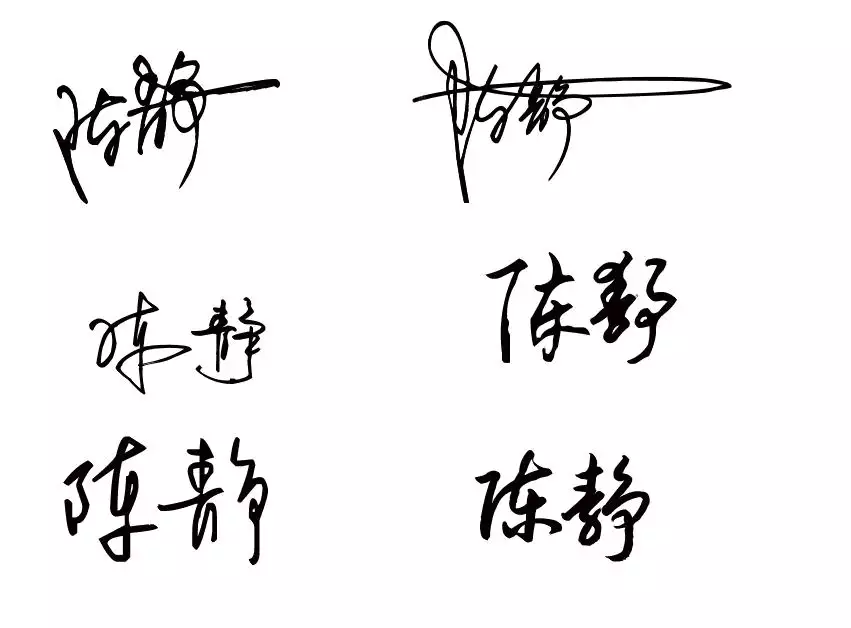 陈静 陈静
陈静 陈静
陈静 陈静